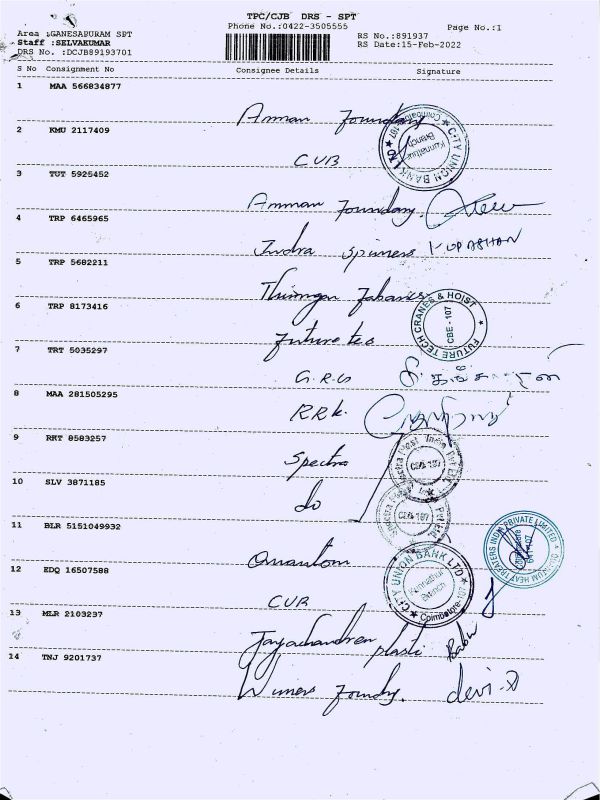 TPC/CJB DRS - SPT
Phone No.:0422-3505555
Page No.:1
Area :GANESAPURAM SPT
Staff :SELVAKUMAR
DRS No. :DCJB89193701
RS No.:891937
RS Date:15-Feb-2022
S No Consignment No Consignee Details Signature
1 MAA 566834877
Amman Foundary
CITY UNION BANK LTD
Kunnathur
Branch
Coimbatore - 107
2 KMU 2117409
CUB
3 TUT 5925452
Amman Foundary.
4 TRP 6465965
Indra spinners
5 TRP 5682211
FUTURE TECH CRANES & HOIST
CBE - 107
6 TRP 8173416
Future tec
7 TRT 5035297
G.R.G
8 MAA 281505295
RRK.
9 RKT 8583257
Spectra
CBE-107
10 SLV 3871185
do
CBE-107
11 BLR 5151049932
Quantum
12 EDQ 16507588
CUB
CITY UNION BANK LTD
Kunnathur
Branch
13 MLR 2103237
Jayachandren plasti Babu
14 TNJ 9201737
Winners Foundry. devi.D